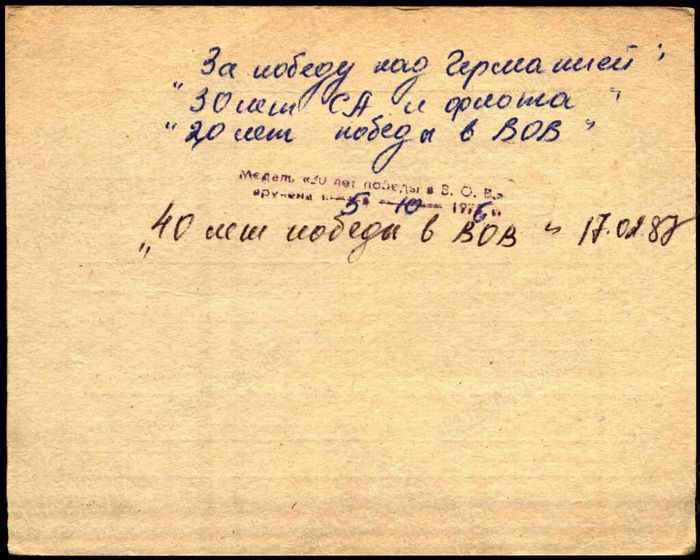 За победу над Германией"
"30 лет СА и флота"
"20 лет победы в ВОВ"
Медаль «30 лет победы в В. О. В.»
вручена 5 10 1976 г.
"40 лет победы в ВОВ" 17.02.87